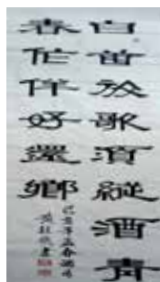 白首放歌須縱酒青
春作伴好還鄉